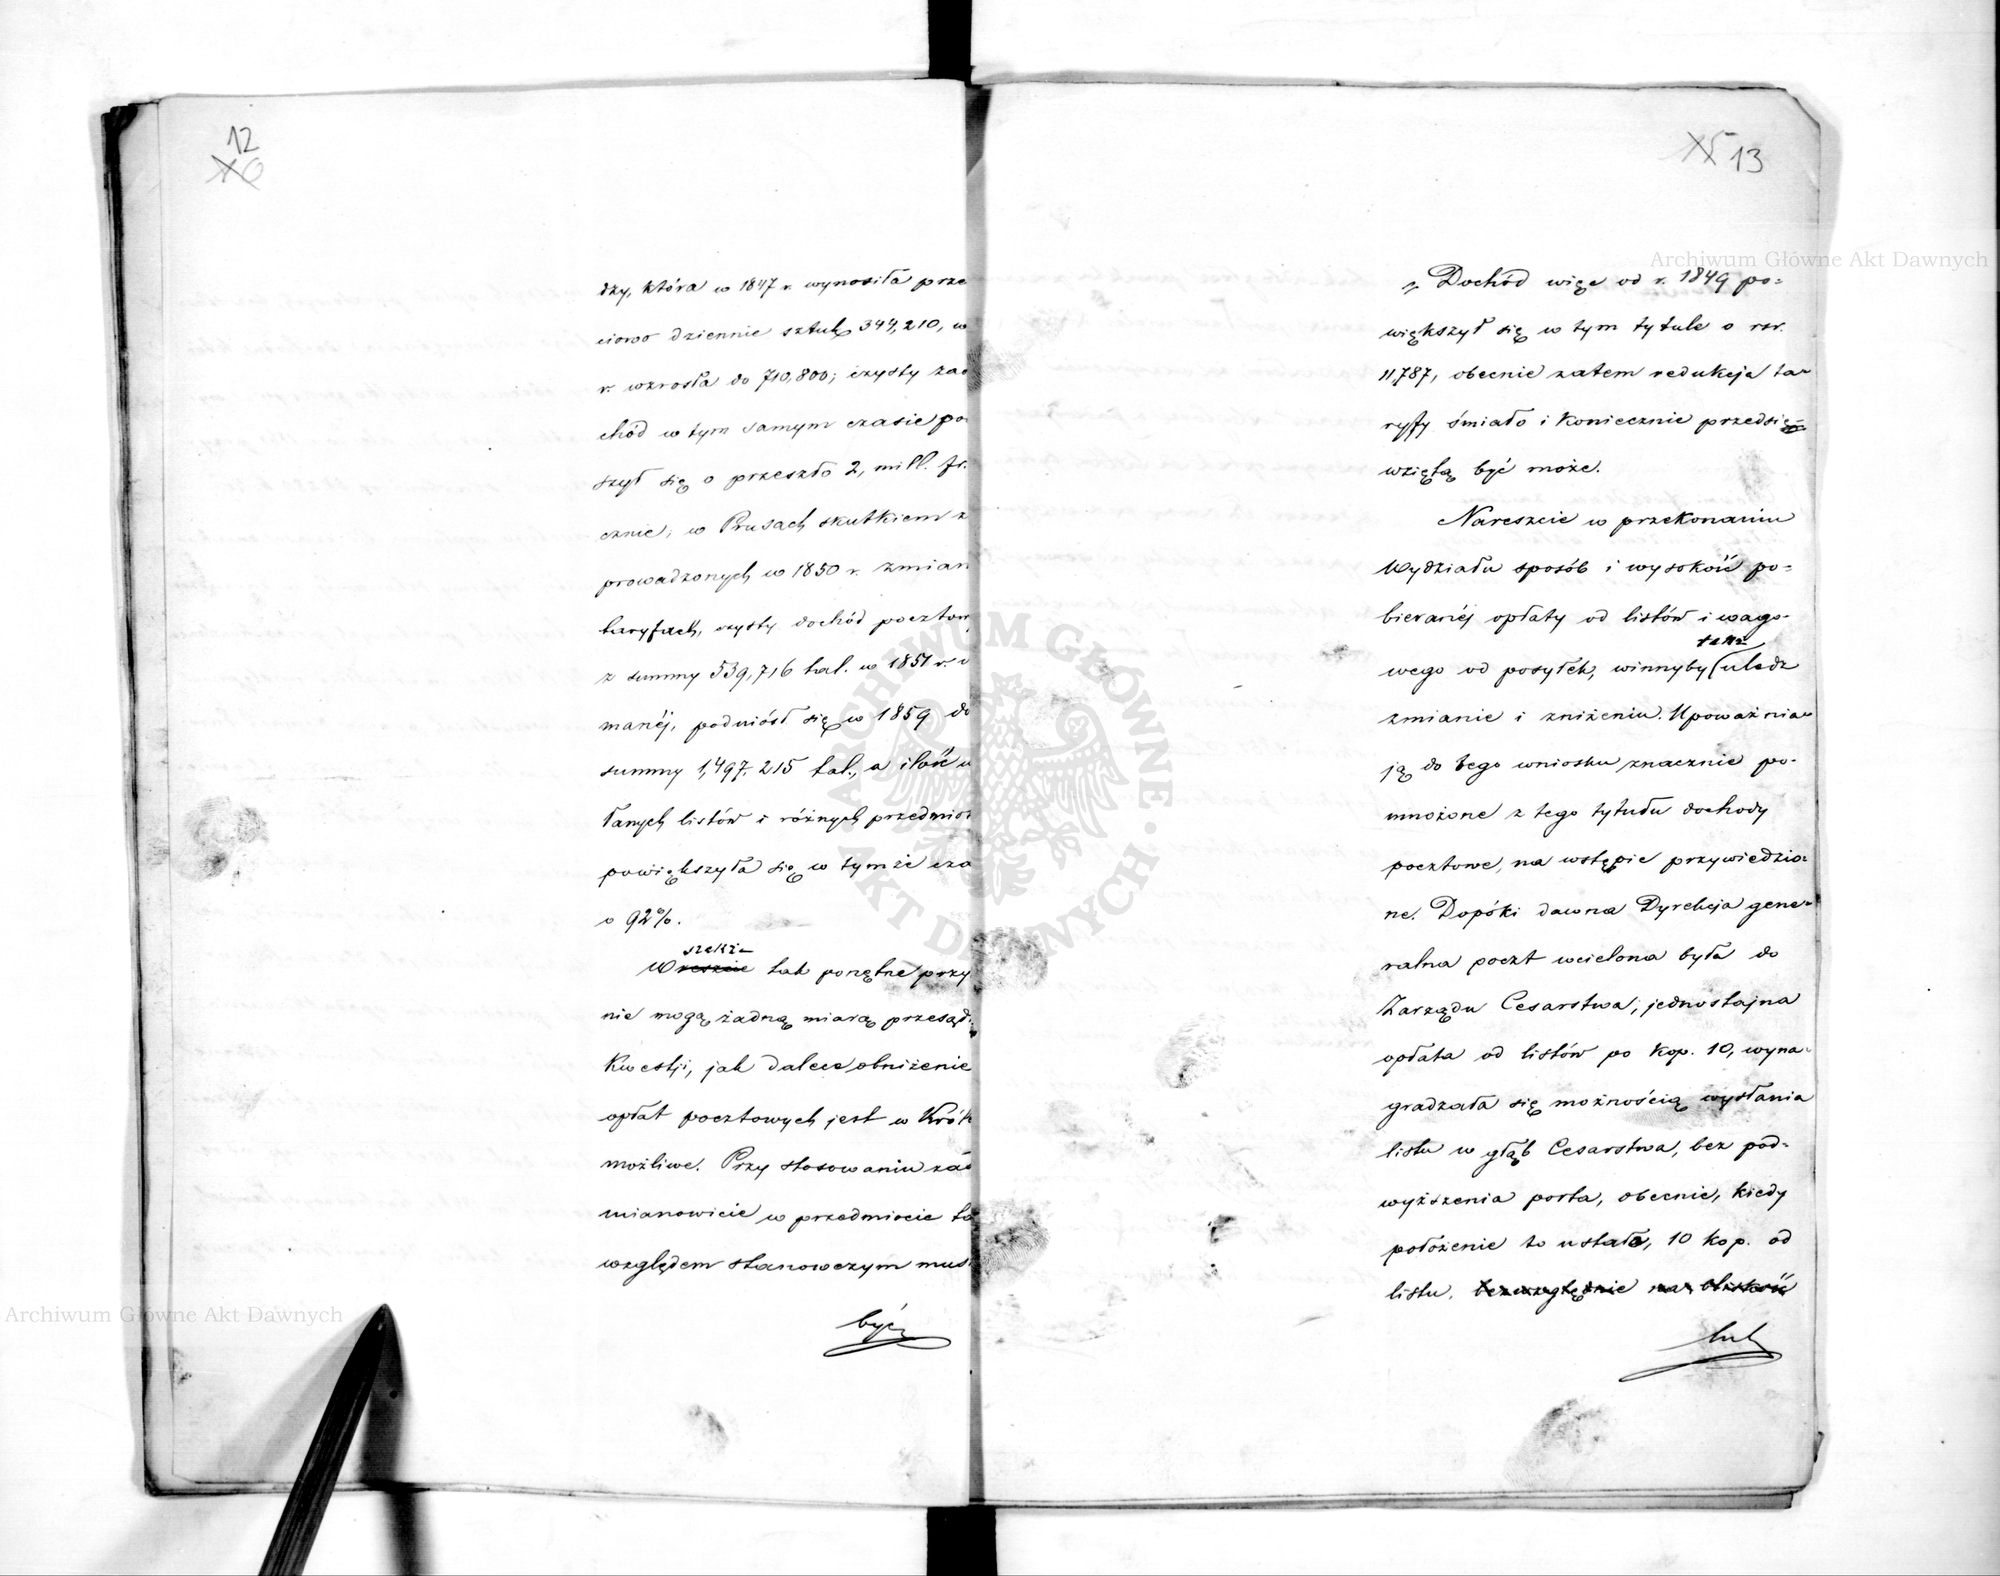 12
dzy, która w 1847 r. wynosiła prze
ciowo dziennie sztuk 344,210, w
r. wzrosła do 710,800; czysty zaś
chód w tym samym czasie po
szył się o przeszło 2, mill. fr.
cznie; w Prusach skutkiem z
prowadzonych w 1850 r. zmian
taryfach, czysty dochód pocztow
z summy 539,716 tal. w 1851 r.
manéj, podniósł się w 1859 do
summy 1,497,215 tal., a ilość
łanych listów i różnych przedmio
powiększyła się w tymże cza
o 92%.
Wreszcie tak ponętne przy
nie mogą żadną miarą przesąd
Kwestji, jak dalece obniżenie
opłat pocztowych jest w Kró
możliwe. Przy stosowaniu zaś
mianowicie w przedmiocie ta
względem stanowczym mus
być
13
Dochód więc od r. 1849 po=
większył się w tym tytule o rsr.
11,787, obecnie zatem redukcja ta=
ryfy śmiało i Koniecznie przedsię
wziętą być może.
Nareszcie w przekonaniu
Wydziału sposób i wysokość po=
bieranéj opłaty od listów i wago-
wego od posyłek, winnyby (uledz
zmianie i zniżeniu. Upoważnia=
ją do tego wniosku znacznie po-
mnożone z tego tytułu dochody
pocztowe, na wstępie przywiedzio=
ne. Dopóki dawna Dyrekcja gene=
ralna poczt wcielona była do
Zarządu Cesarstwa, jednostajna
opłata od listów po Kop. 10, wyna=
gradzała się możnością wysłania
listu w głąb Cesarstwa, bez pod=
wyższenia porta, obecnie, kiedy
położenie to ustało, 10 kop. od
listu. bezwzględnie na bliskość
lub
Archiwum Główne Akt Dawnych
Archiwum Główne Akt Dawnych
ARCHIWUM GŁÓWNE AKT DAWNYCH